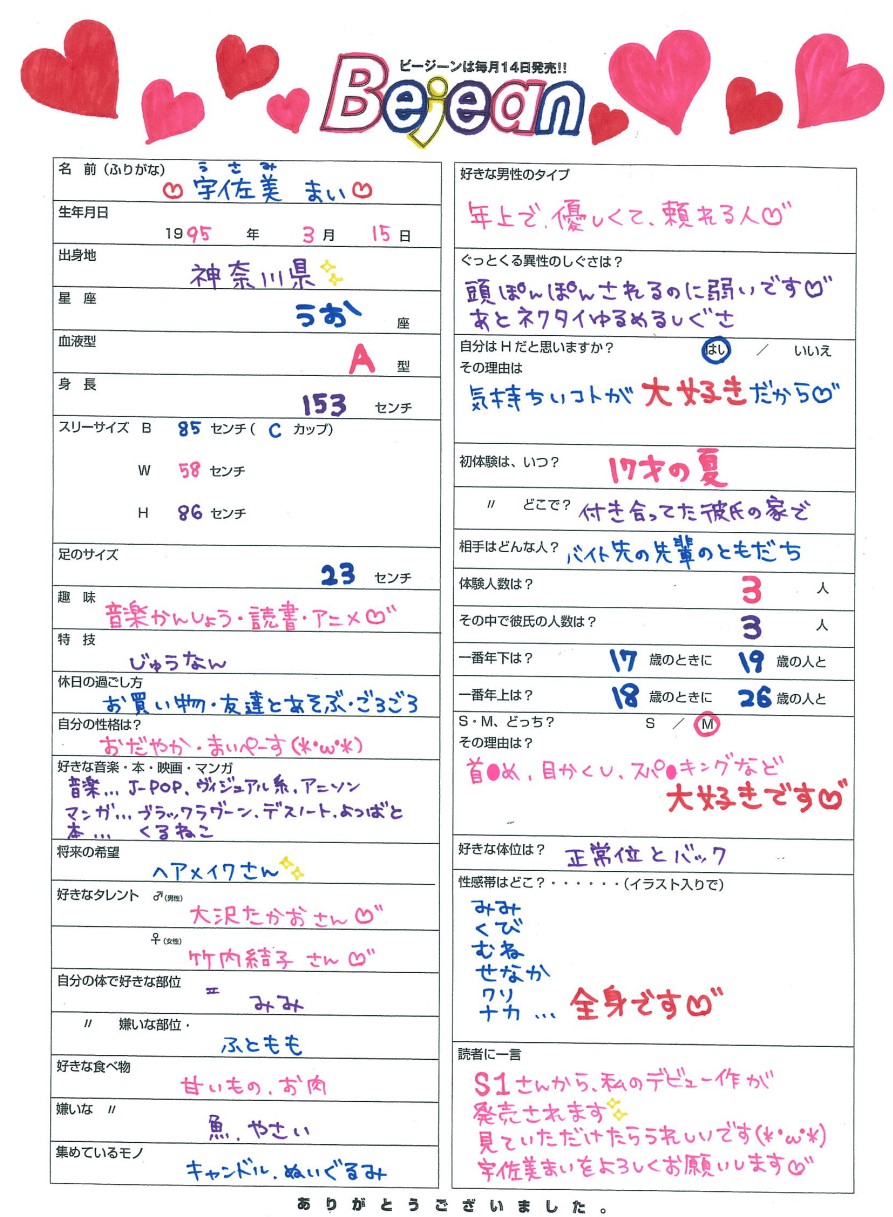 ビージーンは毎月14日発売!!
Bejean
名 前(ふりがな)
うさみ
♡宇佐美 まい♡
生年月日
1995 年 3月 15日
出身地
神奈川県
星 座
うお 座
血液型
A 型
身 長
153 センチ
スリーサイズ B 85 センチ( C カップ)
W 58 センチ
H 86 センチ
足のサイズ
23 センチ
趣 味
音楽かんしょう・読書・アニメ♡
特 技
じゅうなん
休日の過ごし方
お買い物・友達とあそぶ・ごろごろ
自分の性格は?
おだやか・まいぺーす(*・ω・*)
好きな音楽・本・映画・マンガ
音楽… J-POP、ヴィジュアル系、アニソン
マンガ… ブラックラグーン、デスノート、よつばと
本… くるねこ
将来の希望
ヘアメイクさん
好きなタレント ♂(男性)
大沢たかおさん♡
♀(女性)
竹内結子さん♡
自分の体で好きな部位
みみ
〃 嫌いな部位・
ふともも
好きな食べ物
甘いもの、お肉
嫌いな 〃
魚、やさい
集めているモノ
キャンドル、ぬいぐるみ
好きな男性のタイプ
年上で、優しくて、頼れる人♡
ぐっとくる異性のしぐさは?
頭ぽんぽんされるのに弱いです♡
あとネクタイゆるめるしぐさ
自分はHだと思いますか? はい / いいえ
その理由は
気持ちいコトが大好きだから♡
初体験は、いつ? 17才の夏
〃 どこで? 付き合ってた彼氏の家で
相手はどんな人? バイト先の先輩のともだち
体験人数は? 3 人
その中で彼氏の人数は? 3 人
一番年下は? 17 歳のときに 19 歳の人と
一番年上は? 18 歳のときに 26 歳の人と
S・M、どっち? S / M
その理由は?
首●め、目かくし、スパ●キングなど
大好きです♡
好きな体位は? 正常位とバック
性感帯はどこ?・・・・・・(イラスト入りで)
みみ
くび
むね
せなか
クリ
ナカ … 全身です♡
読者に一言
S1さんから、私のデビュー作が
発売されます
見ていただけたらうれしいです(*・ω・*)
宇佐美まいをよろしくお願いします♡
ありがとうございました。